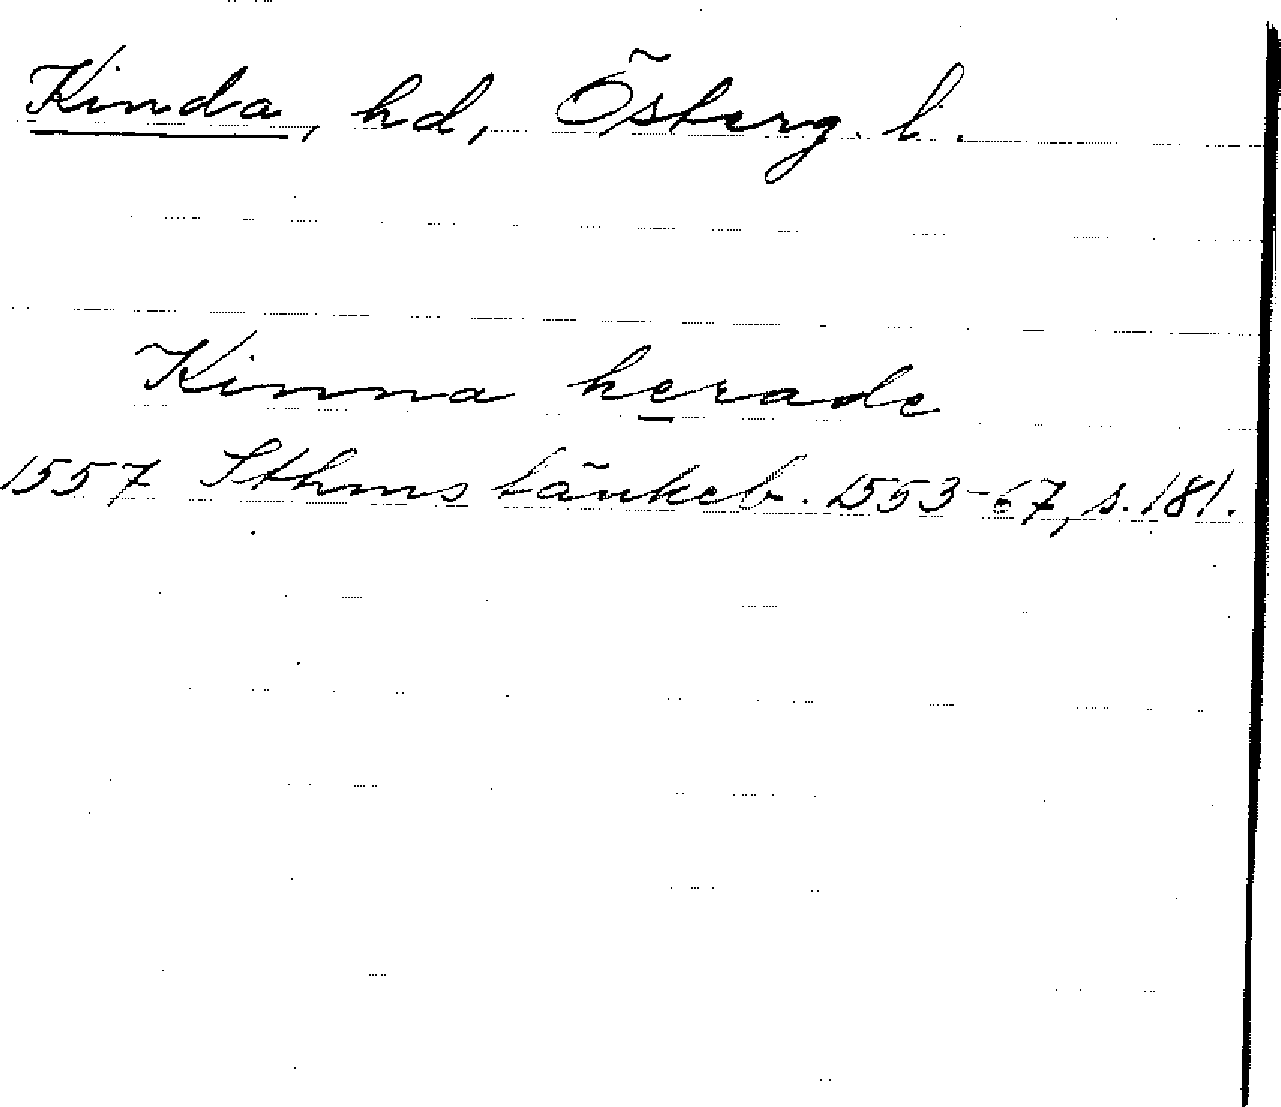 Kinda, hd, Österg. l.
Kinna herade
1557 Sthms tänkeb. 1553-67, s. 181.